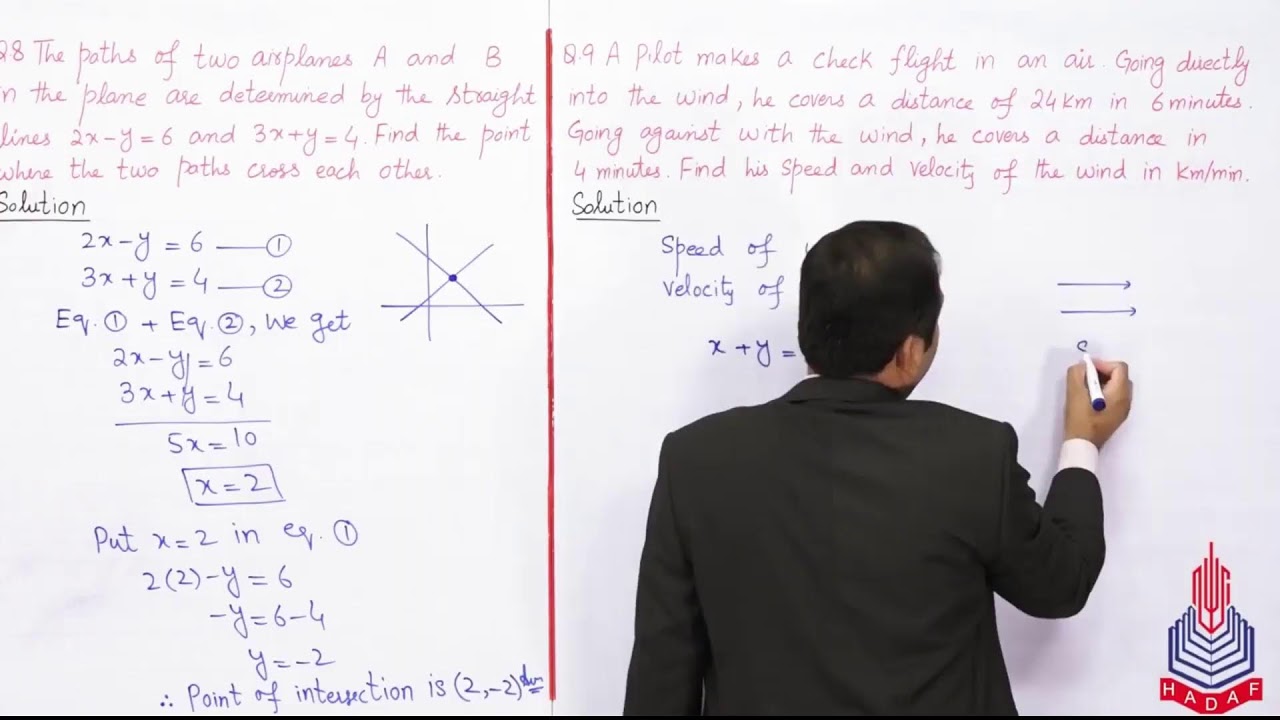 Q.8 The paths of two airplanes A and B
in the plane are determined by the straight
lines 2x-y=6 and 3x+y=4. Find the point
where the two paths cross each other.
Solution
2x-y=6 —①
3x+y=4 —②
Eq.① + Eq.②, we get
2x-y=6
3x+y=4
5x=10
x=2
Put x=2 in eq. ①
2(2)-y=6
-y=6-4
y=-2
∴ Point of intersection is (2,-2)
Q.9 A Pilot makes a check flight in an air. Going directly
into the wind, he covers a distance of 24km in 6 minutes.
Going against with the wind, he covers a distance in
4 minutes. Find his Speed and velocity of the wind in km/min.
Solution
Speed of
velocity of
x+y=
S
HADAF